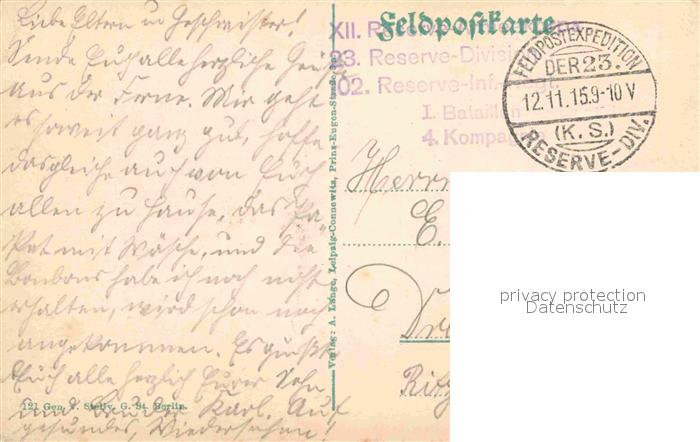 Liebe Eltern u Geschwister!
Sende Euch alle herzliche Grüße
aus der Ferne. Mir geht
es soweit ganz gut, hoffe
dasgleiche auch von Euch
allen zu Hause. Das Pa-
ket mit Wäsche, und die
Bonbons habe ich noch nicht
erhalten, wird schon noch
angekommen. Es grüßt
Euch alle herzlich Eurer Sohn
und Bruder Karl. Auf
gesundes, Wiedersehen!
121 Gen. v. Stellv. G. St. Berlin.
Verlag: A. Lange, Leipzig-Connewitz, Prinz-Eugen-Strasse
Feldpostkarte
XII. Reserve-
23. Reserve-Division
102. Reserve-Inf.-Regt.
I. Bataillon
4. Kompag
FELDPOSTEXPEDITION
DER 23.
12.11.15.9-10 V
(K.S.)
RESERVE-DIV.
Herrn
E.
Dre
privacy protection
Datenschutz